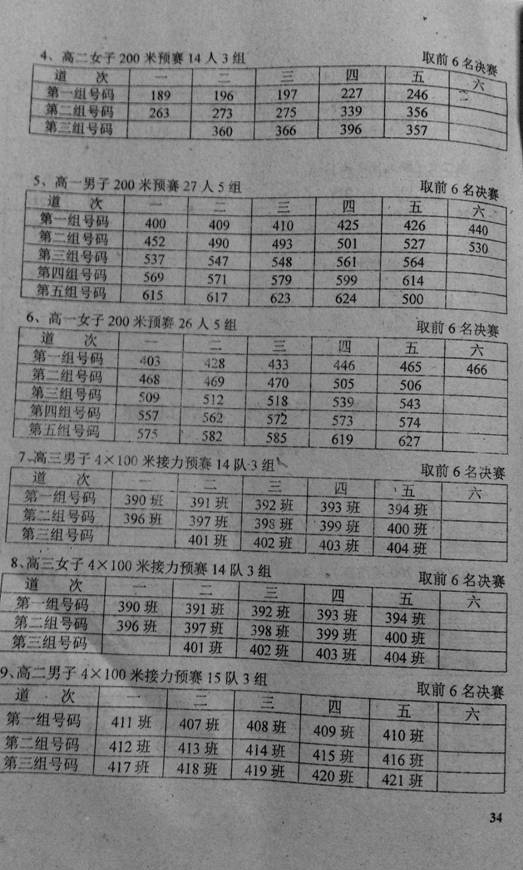 4、高二女子200米预赛14人3组 取前6名决赛
道 次 一 二 三 四 五 六
第一组号码 189 196 197 227 246
第二组号码 263 273 275 339 356
第三组号码 360 366 396 357
5、高一男子200米预赛27人5组 取前6名决赛
道 次 一 二 三 四 五 六
第一组号码 400 409 410 425 426 440
第二组号码 452 490 493 501 527 530
第三组号码 537 547 548 561 564
第四组号码 569 571 579 599 614
第五组号码 615 617 623 624 500
6、高一女子200米预赛26人5组 取前6名决赛
道 次 一 二 三 四 五 六
第一组号码 403 428 433 446 465 466
第二组号码 468 469 470 505 506
第三组号码 509 512 518 539 543
第四组号码 557 562 572 573 574
第五组号码 575 582 585 619 627
7、高三男子4×100米接力预赛14队3组 取前6名决赛
道 次 一 二 三 四 五 六
第一组号码 390班 391班 392班 393班 394班
第二组号码 396班 397班 398班 399班 400班
第三组号码 401班 402班 403班 404班
8、高三女子4×100米接力预赛14队3组 取前6名决赛
道 次 一 二 三 四 五 六
第一组号码 390班 391班 392班 393班 394班
第二组号码 396班 397班 398班 399班 400班
第三组号码 401班 402班 403班 404班
9、高二男子4×100米接力预赛15队3组 取前6名决赛
道 次 一 二 三 四 五 六
第一组号码 411班 407班 408班 409班 410班
第二组号码 412班 413班 414班 415班 416班
第三组号码 417班 418班 419班 420班 421班
34